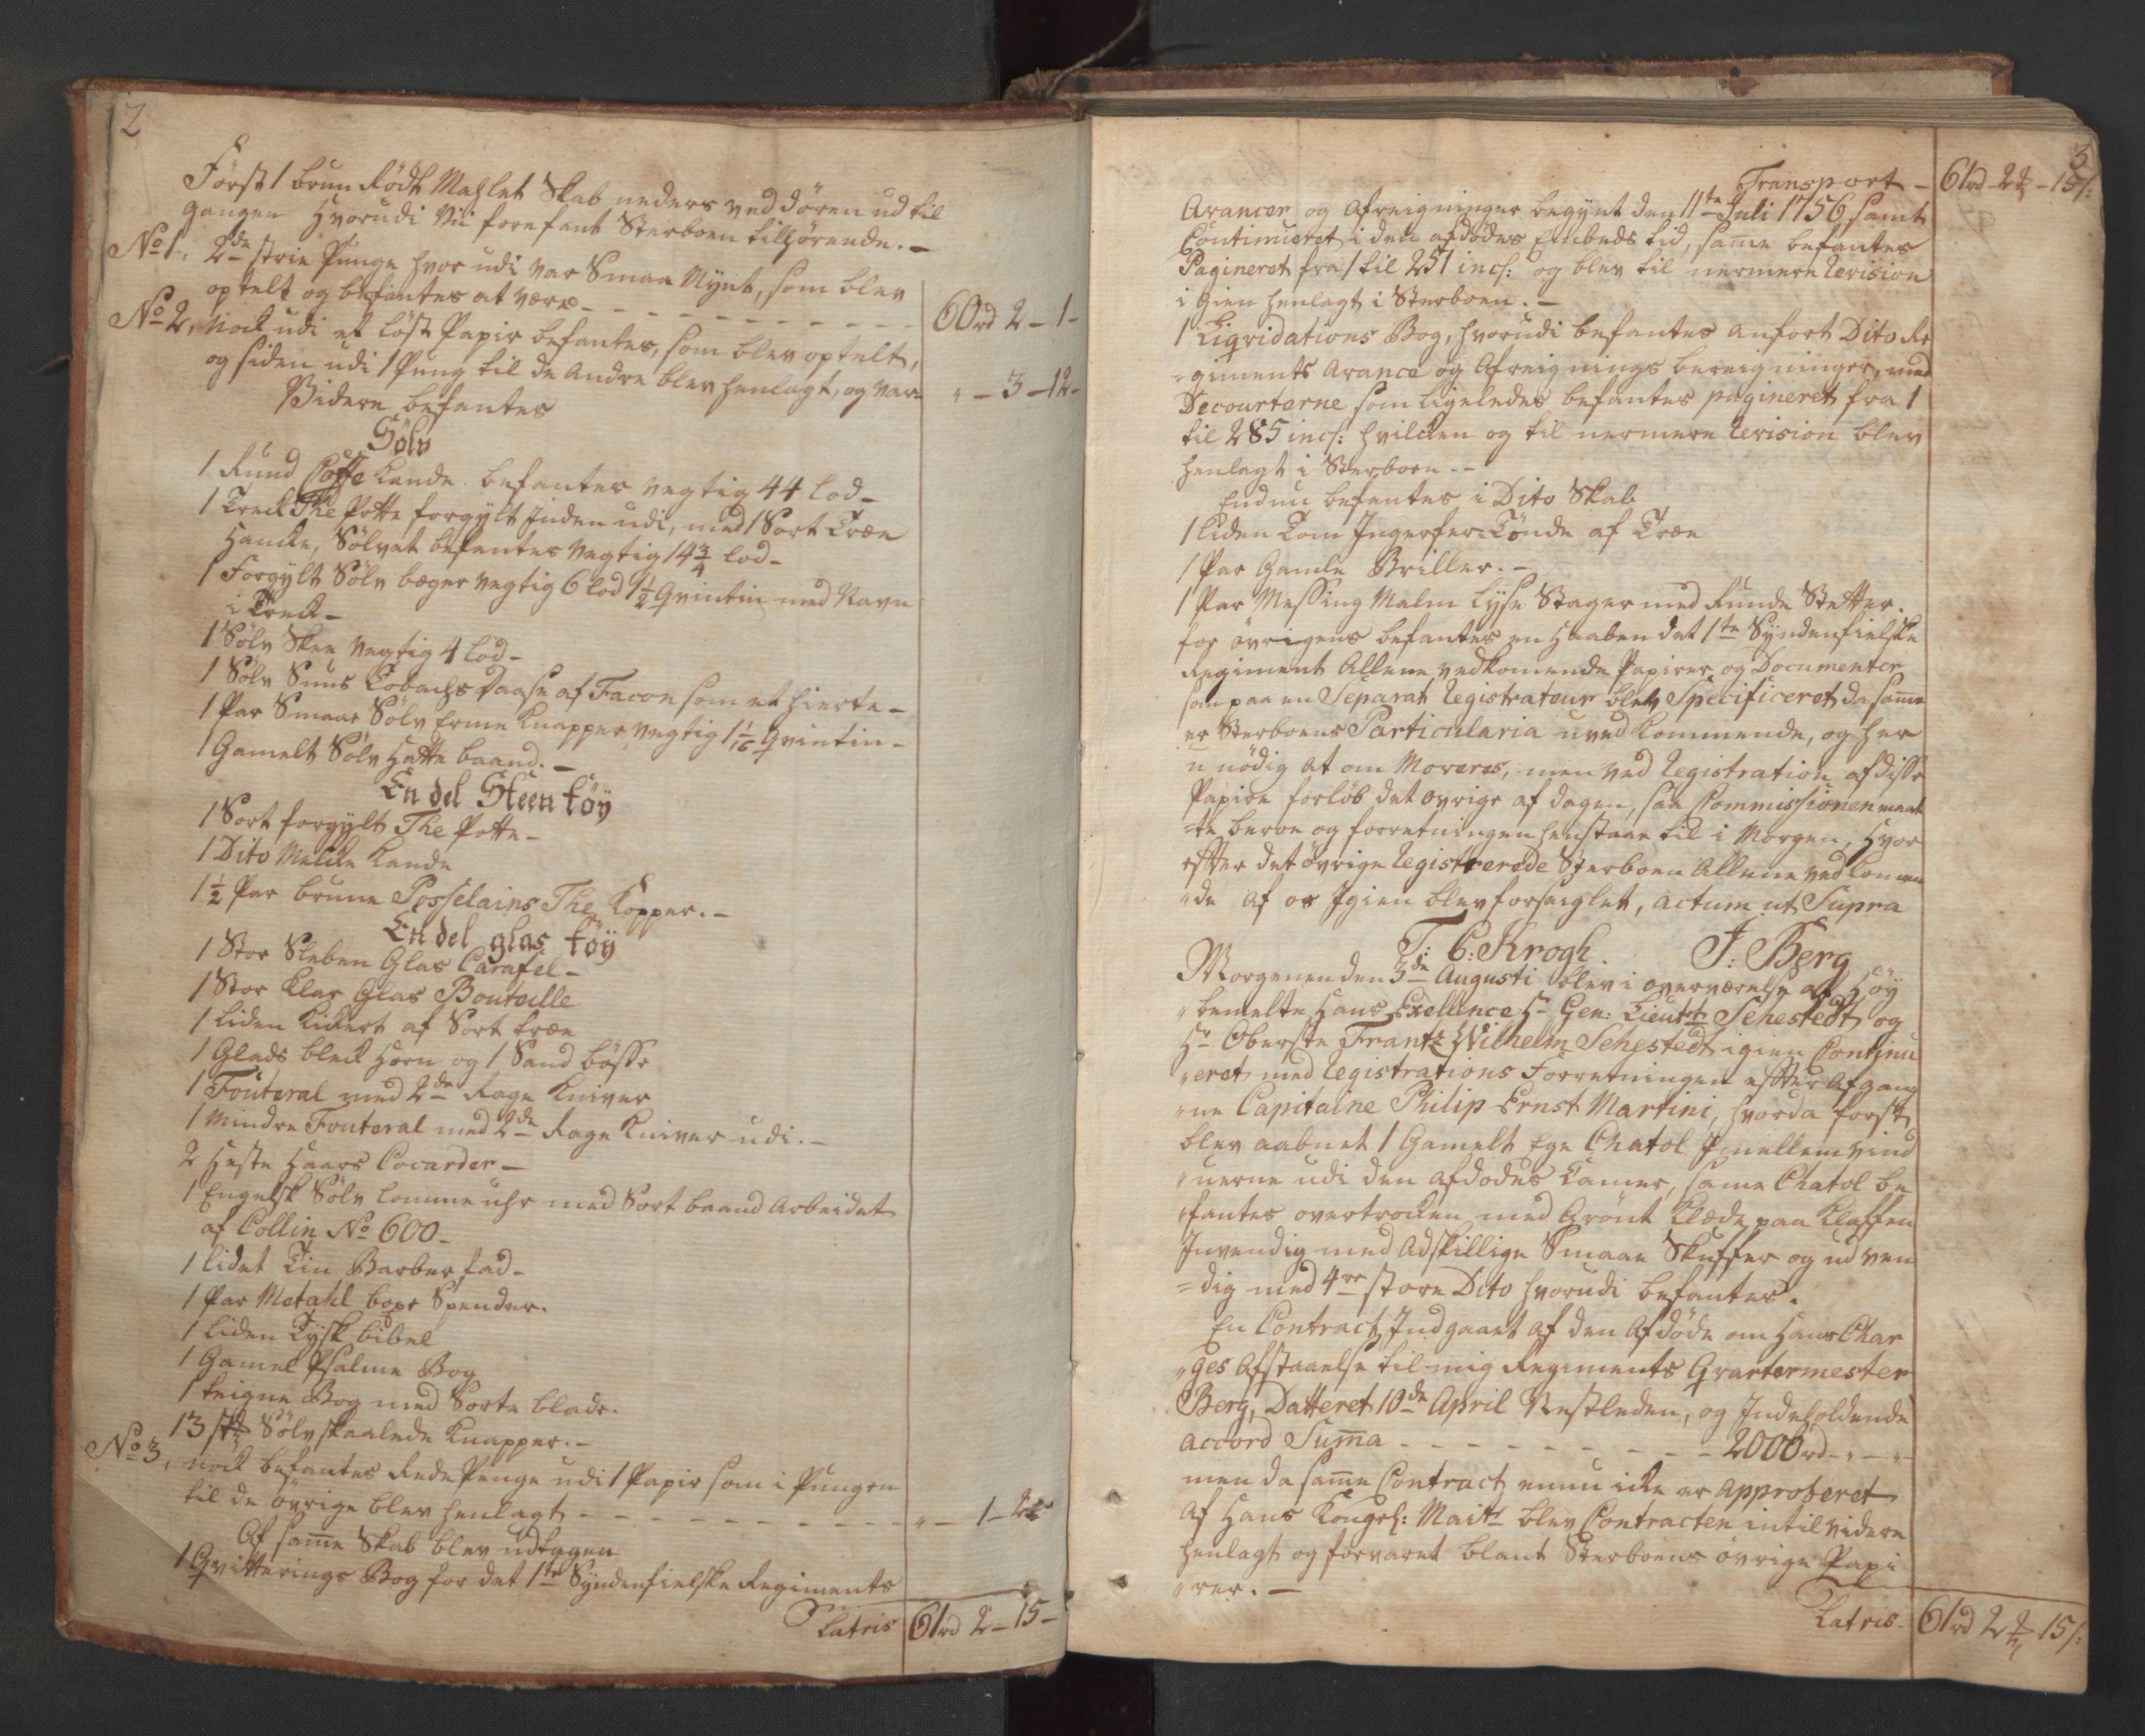 2
Först 1 brun Rödt Mahlet Skab neders ved Dören ud til
gangen Hvorudi Vii forefant Sterboen tilhörende. –
No 1, 2de strie Punge hvor udi var Smaa Mynt, som blev
optelt og befantes at være – – – 60 rd 2 – 1 –
No 2, Nock udi et löst Papir befantes, som blev optelt,
og siden udi 1 Pung til de Andre blev henlagt, og var – „ – 3 – 12 –
Videre befantes
Sölv
1 Rund Coffe Kande befantes vegtig 44 lod –
1 Treck The Potte forgylt Inden udi, med 1 Sort Træe
Hancke, Sölvet befantes vegtig 14 3/4 lod –
1 Forgylt Sölv bæger vegtig 6 lod 1 1/2 Qvintin med Navn
i Treck –
1 Sölv Skee vegtig 4 lod –
1 Sölv Snus Tobachs Daase af Facon som et Hierte –
1 Par Smaae Sölv Erme Knapper, vegtig 1 1/16 Qvintin –
1 Gamelt Sölv Hatte baand. –
En del Steen töy
1 Sort forgylt The Potte –
1 Dito Melcke Kande
1 1/2 Par brune Posselains The Kopper. –
En del glas töy
1 Stor Sleben Glas Carafel –
1 Stor Klar Glas Bouteille
1 liden Kickert af Sort træe
1 Glads bleck Horn og 1 Sand bösse
1 Fouteral med 2de Rage Kniver
1 Mindre Fouteral med 2de Rage Kniver udi. –
2 Heste Haars Cocarder –
1 Engelsk Sölv lomme uhr med Sort baand Arbeidet
af Collin No 600 –
1 lidet Tin Barber fad –
1 Par Metahl boxe Spender.
1 liden Tysk bibel
1 Gamel Psalme Bog
1 teigne Bog med Sorte blade.
13 stk Sölvskaalede Knapper. –
No 3, nock befantes Rede Penge udi 1 Papir som i Pungen
til de övrige blev henlagt – – – „ – 1 – 2
Af samme Skab blev udtagen
1 Qvitterings Bog for det 1te Syndenfielske Regiments
Latris 61 rd 2 – 15 –
3
Transport – 61 rd – 2 – 15 s:
Avancer og afreigninger begynt den 11te Juli 1756 samt
Continueret i den afdödes Embeds tid, same befantes
Pagineret fra 1 til 251 incl: og blev til nermere Revision
i gien henlagt i Sterboen. –
1 Liqvidations Bog, hvorudi befantes anfört Dito Re
=giments Avance og Afreignings bereigninger, med
Decourterne som ligeledes befantes pagineret fra 1
til 285 incl: hvilcken og til nermere Revision blev
henlagt i Sterboen –
Endnu befantes i Dito Skab
1 liden Tom Ingerfer-Tönde af Træe
1 Par Gamle Briller. –
1 Par Messing Malm Lyse Stager med Runde Stetter.
for övrigens befantes en Haaben det 1te Syndenfielske
Regiment Allene vedkomende Papirer og Documenter
som paa en Separat Registrateur blev Specificeret, da samme
er Sterboens Particularia uvedkommende, og her
u nödig at om Moveres, men ved Registration af disse
Papire forlöb det övrige af dagen, saa Commissionen maat
=te beroe og forretningen henstaae til i Morgen, Hvor
efter det övrige Registrerede Sterboen Allene vedkommen
„de af os Igien blev forseiglet, actum ut Supra
T: C: Krogh. J: Berg
Morgenen den 3de Augusti blev i overværelse af Höy
„bemelte Hans Exellence Hr Gen: Lieutnt Sehestedt og
Hr Oberste Frantz Wilhelm Sehestedt igien Continu
„eret med Registrations Forretningen efter Afgang
„ne Capitaine Philip Ernst Martini, hvorda först
blev aabnet 1 Gamelt Ege Chatol Imellem vind
„uerne udi den afdödes Kamer, same Chatol be
„fantes overtrocken med Grönt Klæde paa Klaffen
Invendig med Adskillige Smaae Skuffer og udven
=dig med 4re store Dito hvorudi befantes.
En Contract Indgaaet af den Afdöde om Hans Char
„ges Afstaaelse til mig Regiments Qvartermester
Berg, Datteret 10de April Nestleden, og Indeholdende
accord Summa – – – 2000 rd – „ – „ –
men da samme Contract ennu icke er approberet
af Hans Kongel: Maitt blev Contracten intil videre
henlagt og forvaret blant Sterboens övrige Papi
„rer. –
Latris – 61 rd 2 15 s: